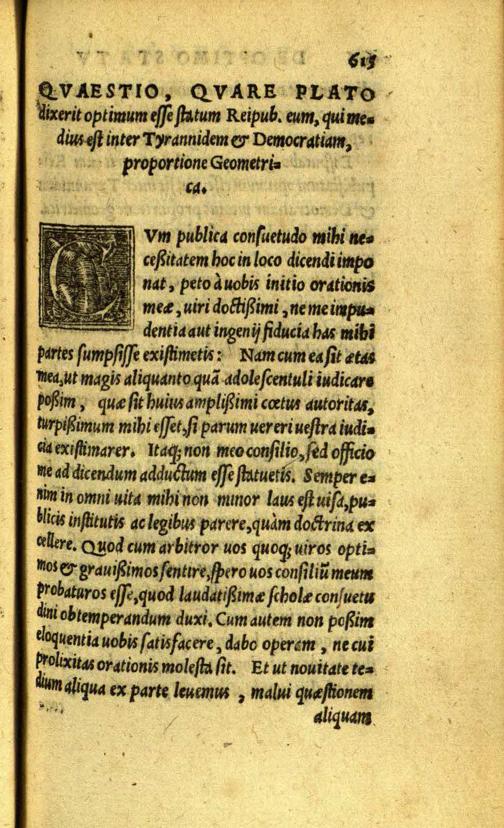 615
QVAESTIO, QVARE PLATO
dixerit optimum eſſe ſtatum Reipub. eum, qui me=
dius eſt inter Tyrannidem & Democratiam,
proportione Geometri=
ca.
CVm publica conſuetudo mihi ne=
ceßitatem hoc in loco dicendi impo
nat, peto à uobis initio orationis
meæ, uiri doctißimi, ne me impu=
dentia aut ingenij fiducia has mihi
partes ſumpſiſſe exiſtimetis: Nam cum ea ſit ætas
mea, ut magis aliquanto quã adoleſcentuli iudicare
poßim, quæ ſit huius amplißimi cœtus autoritas,
turpißimum mihi eſſet, ſi parum uereri ueſtra iudi=
cia exiſtimarer. Itaq; non meo conſilio, ſed officio
me ad dicendum adductum eſſe ſtatuetis. Semper e=
nim in omni uita mihi non minor laus eſt uiſa, pu=
blicis inſtitutis ac legibus parere, quàm doctrina ex
cellere. Quod cum arbitror uos quoq; uiros opti=
mos & grauißimos ſentire, ſpero uos conſiliũ meum
probaturos eſſe, quod laudatißimæ ſcholæ conſuetu
dini obtemperandum duxi. Cum autem non poßim
eloquentia uobis ſatisfacere, dabo operam, ne cui
prolixitas orationis moleſta ſit. Et ut nouitate te=
dium aliqua ex parte leuemus, malui quæſtionem
aliquam